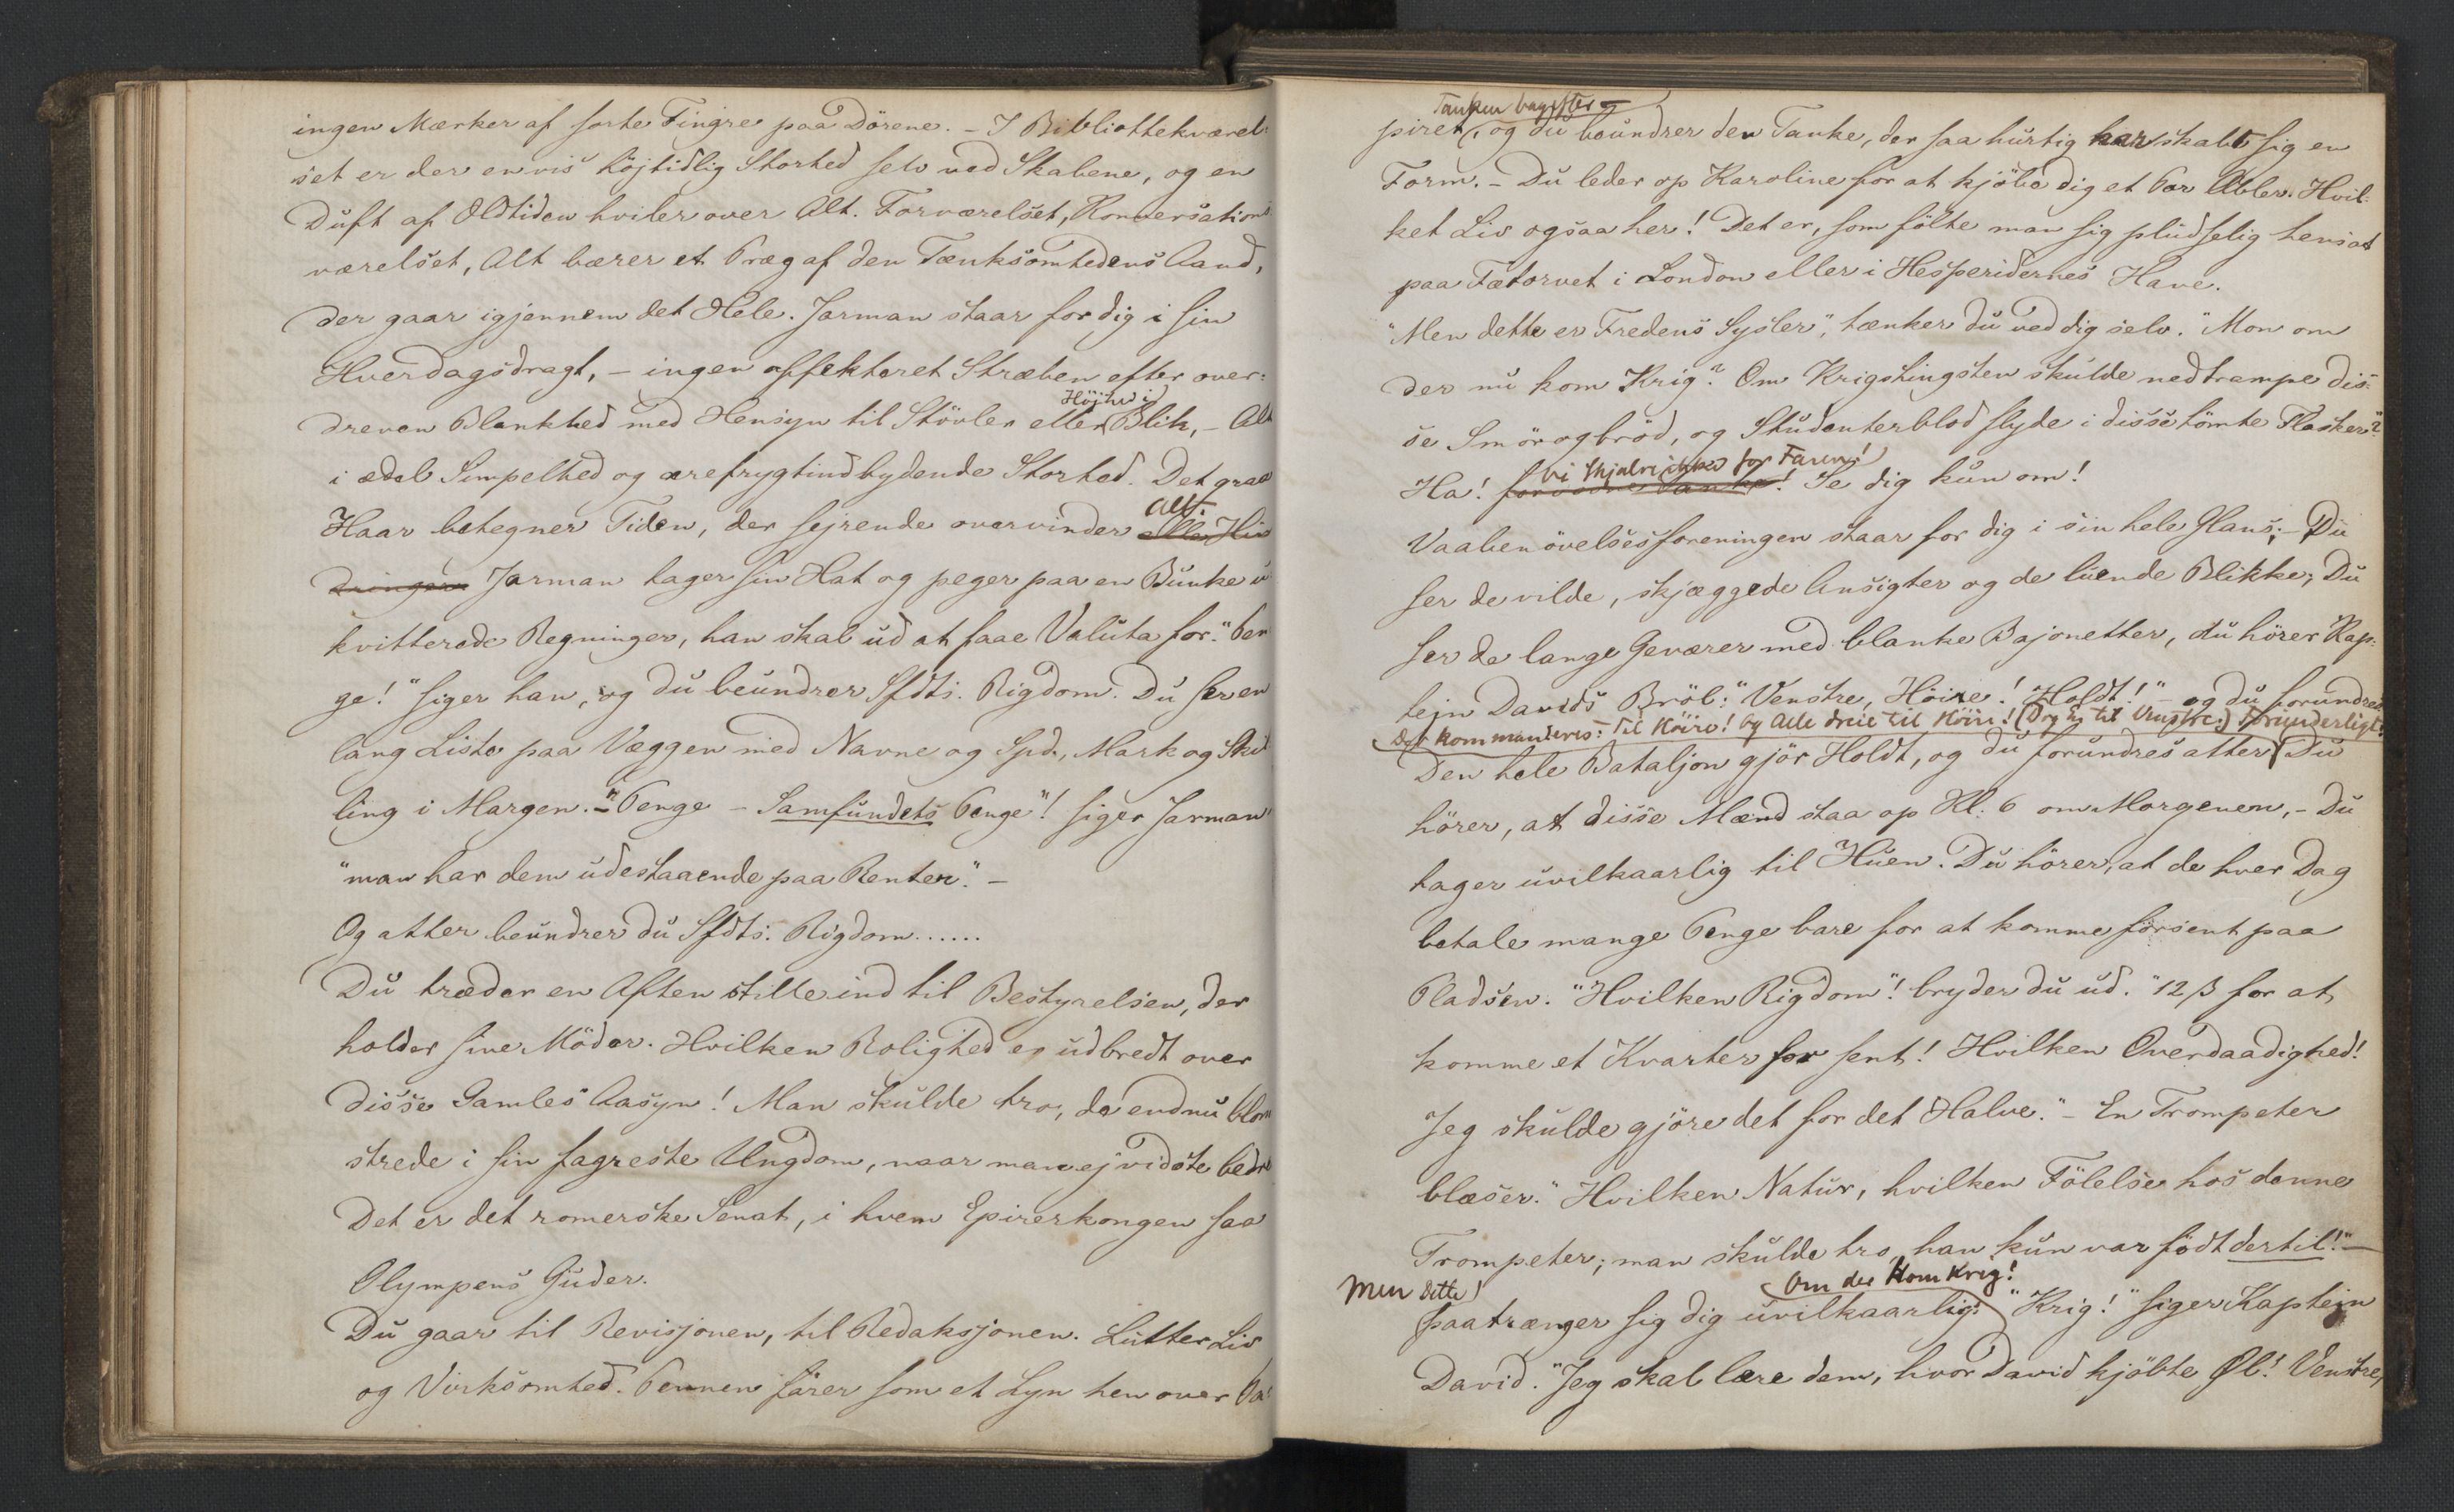 ingen Mærker af sorte Fingre paa Dörene. – I Bibliothekværel-
set er der en vis höjtidlig Storhed selv ved Skabene, og en
Duft af Oldtiden hviler over Alt. Forværelset, Konversations-
værelset, Alt bærer et Præg af den Tænksomhedens Aand,
der gaar igjennem det Hele. Jarman staar for dig i sin
Hverdagsdragt, – ingen affekteret Stræben efter over-
Höjhed i
dreven Blankhed med Hensyn til Stövler eller Blik, – Alt
i ædel Simpelhed og ærefrygtindbydende Storhed. Det graa
Alt.
Haar betegner Tiden, der sejrende overvinder alle Hin
dringer Jarman tager sin Hat og peger paa en Bunke u
kvitterede Regninger, han skal ud at faae Valuta for. "Pen
ge!" siger han, og du beundrer Sfdts. Rigdom. Du ser en
lang Liste paa Væggen med Navne og Spd., Mark og Skil
ling i Margen. – "Penge – Samfundets Penge"! siger Jarman
"man har dem udestaaende paa Renter." –
Og atter beundrer du Sfdts. Rigdom......
Du træder en Aften stille ind til Bestyrelsen, der
holder sine Möder. Hvilken Rolighed er udbredt over
disse Gamles Aasyn! Man skulde tro, de endnu blom
strede i sin fagreste Ungdom, naar man ej vidste bedre
Det er det romerske Senat, i hvem Epirerkongen saa
Olympens Guder.
Du gaar til Revisjonen, til Redaksjonen. Lutter Liv
og Virksomhed. Pennen farer som et Lyn hen over Pa
Tanken bagefter –
piret, og du beundrer den Tanke, der saa hurtig har skabt sig en
Form. – Du leder op Karoline for at kjöbe dig et Par Æbler. Hvil-
ket Liv ogsaa her! Det er, som fölte man sig pludselig hensat
paa Fætorvet i London eller i Hesperidernes Have.
"Men dette er Fredens Sysler", tænker du ved dig selv. "Mon om
der nu kom Krig? Om Krigshingsten skulde nedtrampe dis-
se Smörogbröd, og Studenterblod flyde i disse tömte Flasker?"
vi skjælve ikke for Faren!
Ha! Se dig kun om!
Vaabenövelsesforeningen staar for dig i sin hele Glans; – Du
ser de vilde, skjæggede Ansigter og de luende Blikke; Du
ser de lange Geværer med blanke Bajonetter, du hörer Kap-
tejn Davids Bröl: "Venstre, Höire! Holdt!" – og du forundres
Det kommanderes: Til Höire! og Alle dreie til Höire! (Dog En til Venstre.) Forunderligt!
Den hele Bataljon gjör Holdt, og du forundres atter Du
hörer, at disse Mænd staa op Kl. 6 om Morgenen, – Du
tager uvilkaarlig til Huen. Du hörer, at de hver Dag
betale mange Penge bare for at komme forsent paa
Pladsen. "Hvilken Rigdom"! bryder du ud. "12 ß for at
komme et Kvarter for sent! Hvilken Overdaadighed!
Jeg skulde gjöre det for det Halve." – En Trompeter
blæser. "Hvilken Natur, hvilken Fölelse hos denne
Trompeter; man skulde tro, han kun var födt dertil!" –
Men dette! Om der kom Krig!
paatrænger sig dig uvilkaarlig: "Krig!" siger Kaptejn
David. "Jeg skal lære dem, hvor David kjöbte Øl! Venstre,